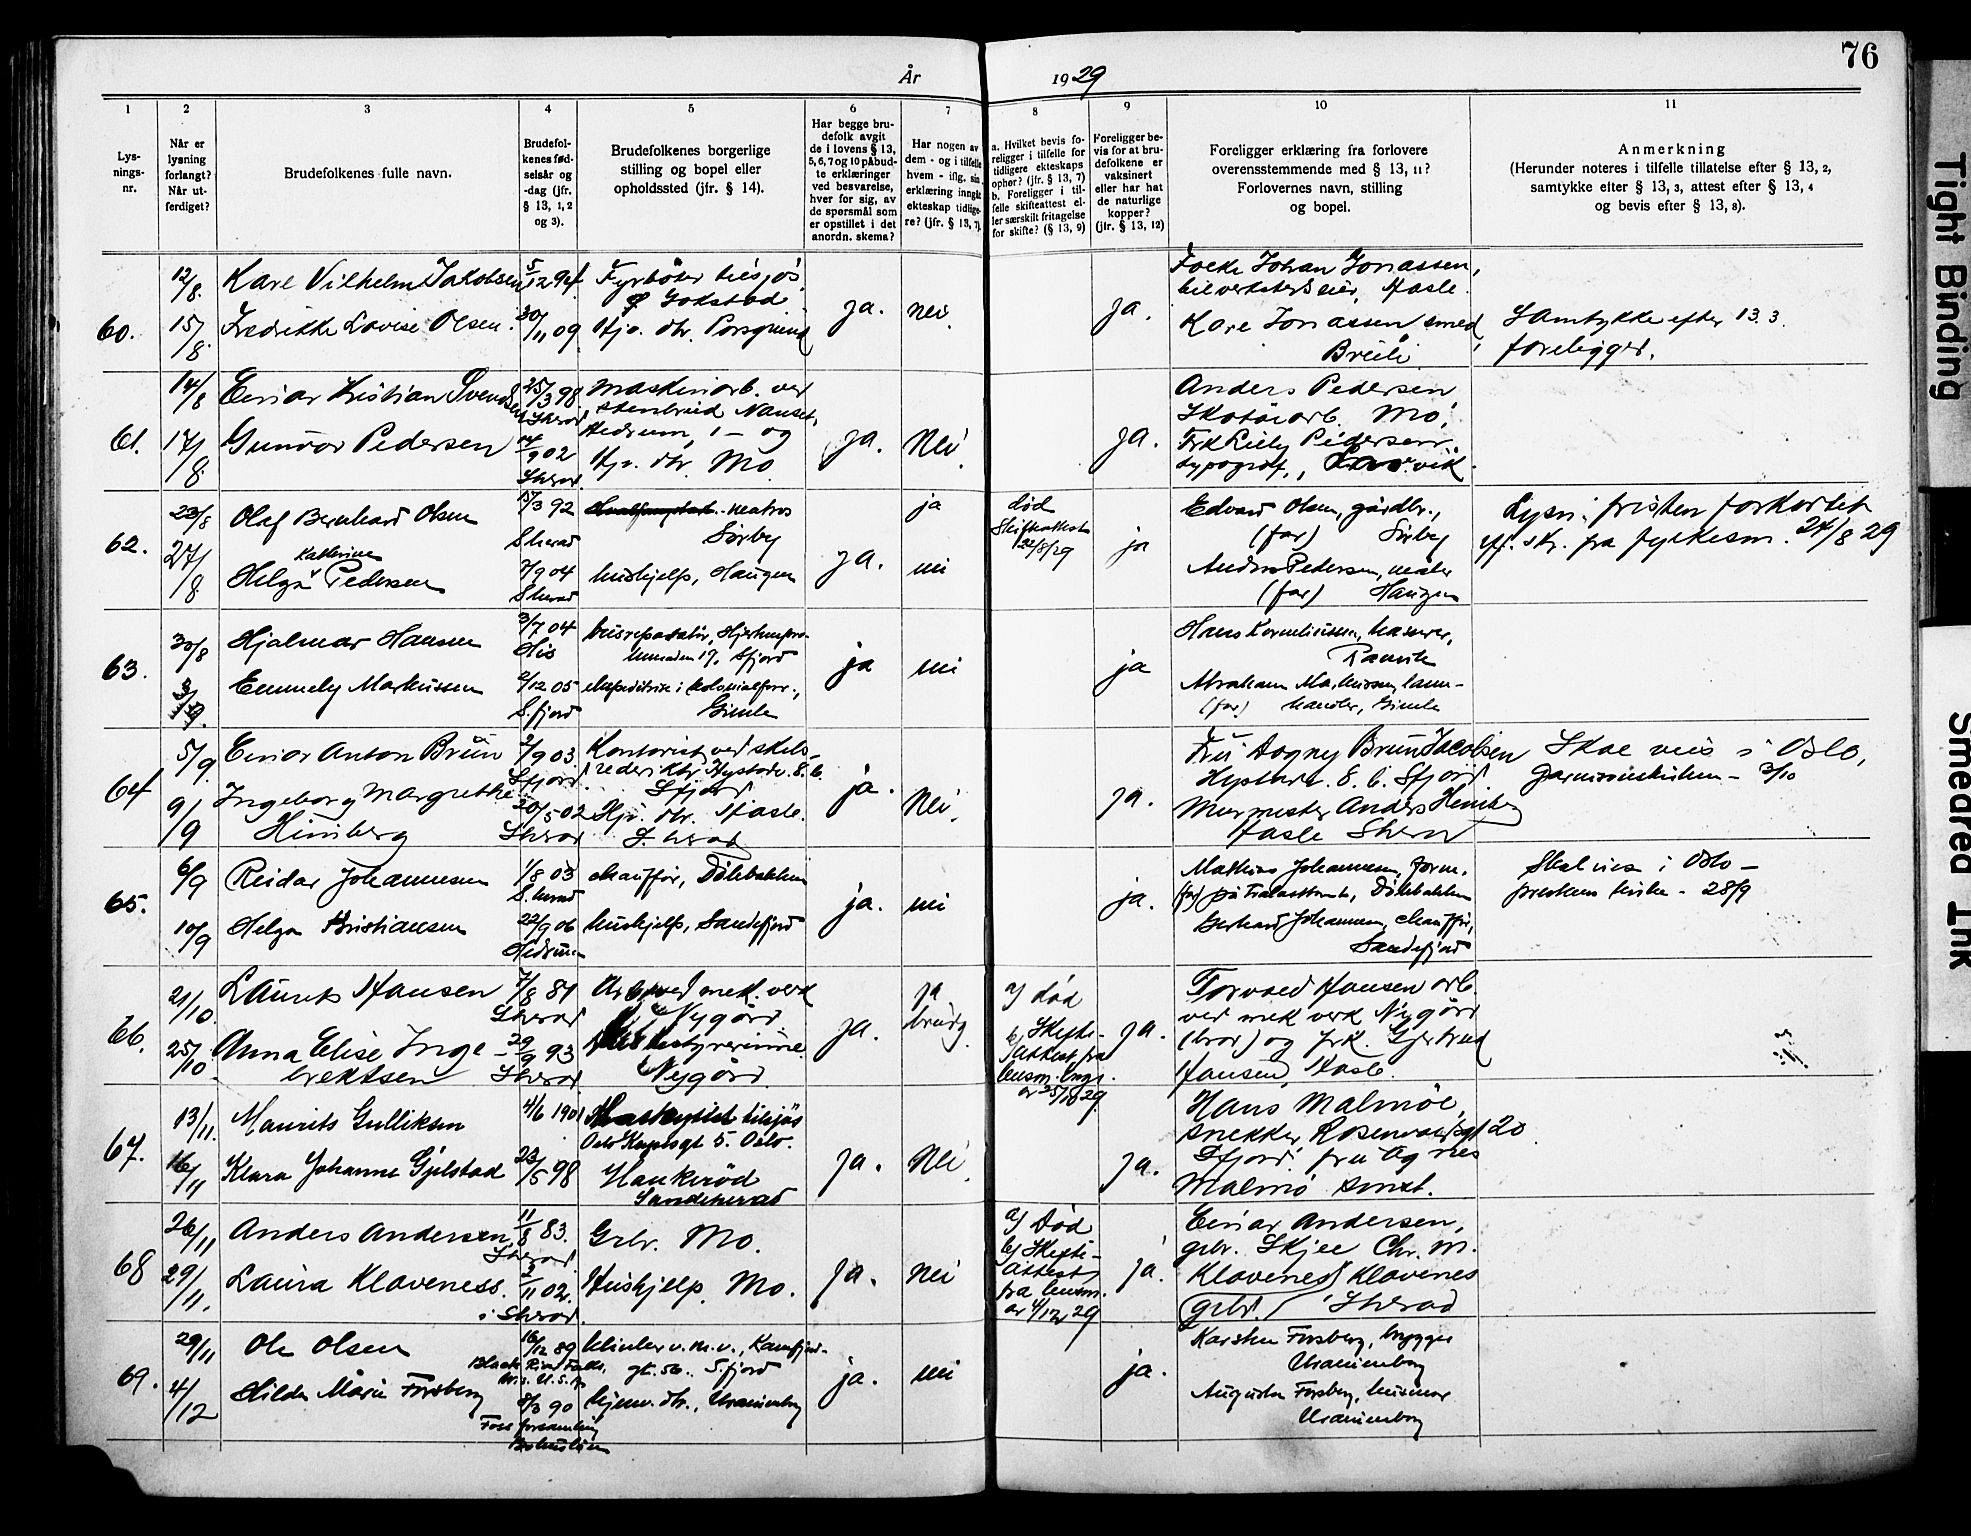 76
År 1929
1 2 3 4 5 6 7 8 9 10 11
Lys-
nings-
nr.
Når er
lysning
forlangt?
Når ut-
ferdiget?
Brudefolkenes fulle navn.
Brudefol-
kenes fød-
selsår og
-dag (jfr.
§ 13, 1, 2
og 3).
Brudefolkenes borgerlige
stilling og bopel eller
opholdssted (jfr. § 14).
Har begge bru-
defolk avgit
de i lovens § 13,
5, 6, 7 og 10 påbud-
te erklæringer
ved besvarelse,
hver for sig, av
de spørsmål som
er opstillet i det
anordn. skema?
Har nogen av
dem - og i tilfelle
hvem - iflg. sin
erklæring inngåt
ekteskap tidlige-
re? (jfr. § 13, 7)
a. Hvilket bevis fo-
religger i tilfelle for
tidligere ekteskaps
ophør? (jfr. § 13, 7)
b. Foreligger i til-
felle skifteattest el-
ler særskilt fritagelse
for skifte? (§ 13, 9)
Foreligger be-
vis for at bru-
defolkene er
vaksinert
eller har hat
de naturlige
kopper?
(jfr. § 13, 12)
Foreligger erklæring fra forlovere
overensstemmende med § 13, 11?
Forlovernes navn, stilling
og bopel.
Anmerkning
(Herunder noteres i tilfelle tillatelse efter § 13, 2,
samtykke efter § 13, 3, attest efter § 13, 4
og bevis efter § 13, 8).
60.
12/8.
15/8.
Karl Vilhelm Jakobsen
Fredrikke Lovise Olsen.
5/12 94
30/11 09
Fyrbøter tilsjøs
Gokstad
Hjv. dtr. Porsgrund
ja.
nei.
ja.
Johan Jonassen,
Hasle.
Kåre Jonassen, smed
Breili
Samtykke efter 13.3.
foreligger.
61.
14/8
17/8.
Einar Kristian Svendsen
Gunvor Pedersen
25/3 98
Sherad
14/9 02
Sherad.
Maskinarb. ved
stenbrud Nanset,
Hedrum, 1 - og
Hjv. dtr. Mo
ja.
Nei.
ja.
Anders Pedersen
Skotøiarb. Mo,
Pedersen.
typograf, Larvik.
62.
23/8
27/8
Olaf Bernhard Olsen
Kathrine
Helga Pedersen
15/3 92
Sherad
7/9 04
Sherad
matros
Sørby
hushjelp, Haugen
ja.
ja
nei
død
Skifteattest
22/8/29
ja
Edvard Olsen, gårdbr.,
(far) Sørby
Anders Pedersen, maler
(far) Haugen
Lysn. fristen forkortet
eff. skr. fra fylkesm. 24/8 29
63.
30/8
3/9.
Hjalmar Hansen
Emmely Markussen
3/7 04
His
2/12 05
S.fjord
17, Sfjord
ekspeditrise i kolonialforr.,
Gimle
ja
nei
ja
Hans Korneliussen, murer,
Ranvik
Abraham Markussen,
(far) handler, Gimle
64
5/9
9/9
Einar Anton Brun
Ingeborg Margrethe
Himberg
2/9 03.
Sfjord.
20/5 02
Sherad
Kontorist ved skibs-
Sfjord
Hjv. dtr. Hasle.
S.herad
ja.
Nei.
ja.
Fru Dagny Brun Jacobsen
8. b. Sfjord
Murmester Anders Himberg
Hasle Sherad
Skal vies i Oslo,
Garnisonskirken - 3/10
65.
6/9
10/9
Reidar Johannesen
Helga Kristiansen
1/8 03
S.herad
22/9 06
Hedrum
chauffør, Dølebakken
hushjelp, Sandefjord
ja.
nei
ja.
Mathias Johannesen, form.
(far) på Framnes, Dølebakken
Gerhard Johannesen, chauffør,
Sandefjord
Skal vies i Oslo -
kirke - 28/9
66.
21/10.
25/10.
Laurits Hansen
Anna Elise Inge-
brektsen
7/8 81
Sherad
29/9 93
Sherad
Arb. ved mek. verk
Nygård
bestyrerinne.
Nygård.
ja.
ja
brudg.
a/ død
b/ Skifte-
attest fra
lensm.
av 25/10 29.
ja.
Torvald Hansen arb.
ved mek verk Nygård
(bror) og frk. Gjertrud
Hansen, Hasle.
67.
13/11.
16/11
Maurits Gulliksen
Klara Johanne Gjelstad
4/6 1901
23/5 98
tilsjøs
5. Oslo.
Haukerød
Sandeherad
ja.
Nei.
ja.
Hans Malmøe,
snekker Rosenvoldsgt 20.
Sfjord. fru Agnes
Malmø smst.
68
26/11
29/11.
Anders Andersen
Laura Klaveness.
11/8 83.
Sherad.
2/11 02.
i Sherad.
Grbr. Mo.
Hushjelp. Mo.
ja.
Nei
a/ Død
b/ Skifte-
attest
fra lensm.
av 4/12 29
ja.
Einar Andersen,
grbr. Skjee Chr. M.
Klavenes, Klavenes
grbr. Sherad
69.
29/11
4/12
Ole Olsen
Hilda Marie Forsberg
16/12 89
Black River Falls,
Wis. U.S.A.
8/3 90
Foss forsamling
Bohuslän
klinker v. m. v., Kamfjord-
gt. 56., S.fjord
hjemv. dtr., Uranienborg
ja.
nei
ja.
Karsten Forsberg, brygger
Uranienborg
Augusta Forsberg, husmor
Uranienborg
Tight Binding
Smeared Ink